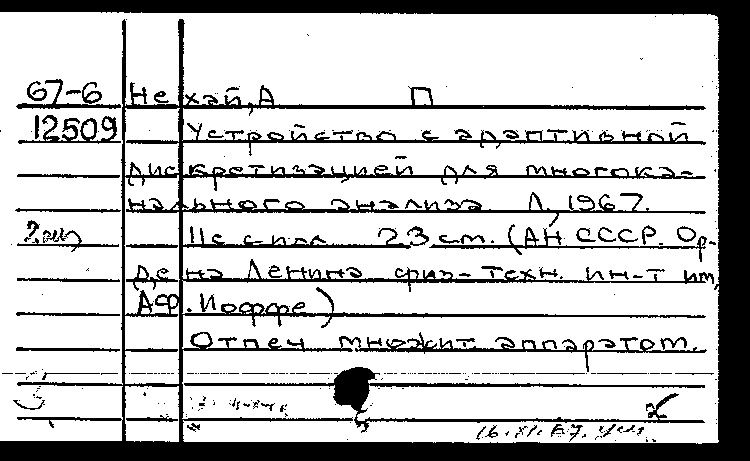 67-6 Нехай, А П
12509 Устройство с адаптивной
дискретизацией для многока-
нального анализа Л., 1967.
11с с илл 23 см. (АН СССР. Ор-
дена Ленина физ-техн. ин-т им,
А.Ф. Иоффе)
Отпеч множит. аппаратом.
16.XI.67.